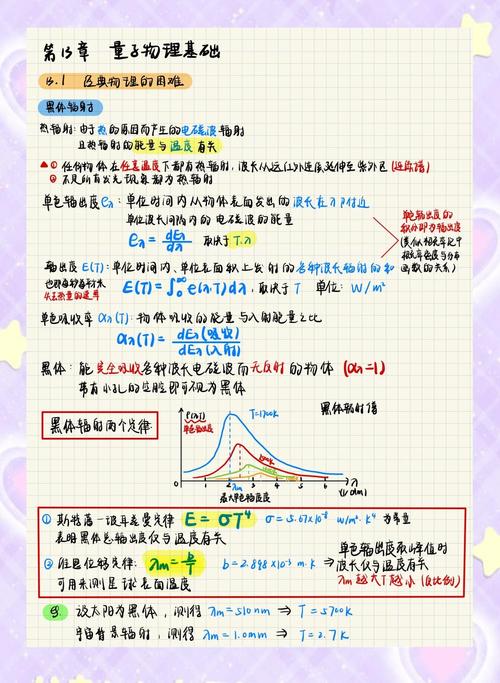 第15章 量子物理基础
15.1 经典物理的困难
黑体辐射
热辐射:由于热的原因而产生的电磁波辐射
且热辐射的能量与温度有关
▲① 任何物体在任意温度下都有热辐射,波长从远红外连续延伸至紫外区(连续谱)
② 不是所有发光现象都为热辐射
单色辐出度eλ:单位时间内从物体表面发出的波长在λ附近
单位波长间隔内的电磁波的能量
eλ = dEλ/dλ 取决于T,λ
单色辐出度的
积分即为辐出度
辐出度E(T):单位时间内、单位表面积上发射的各种波长辐射的和
E(T) = ∫₀^∞ e(λ,T)dλ,取决于T 单位:W/m²
单色吸收率αλ(T):物体吸收的能量与入射能量之比
αλ(T) = dEλ(吸收)/dEλ(入射)
黑体:能完全吸收各种波长电磁波而无反射的物体 (αλ=1)
带有小孔的空腔即可视为黑体
黑体辐射的两个定律
黑体辐射谱
e(λ,T)
单色辐出度
T=1700k
0 1 2 3 4 5 6 λ
λm
① 斯特藩-玻耳兹曼定律 E = σT⁴ σ = 5.67×10⁻⁸ W/m²·K⁴ 为常量
表明黑体总辐出度仅与温度有关
② 维恩位移定律:λm = b/T b = 2.898×10⁻³ m·K ⇒
单色辐出度取峰值时
波长仅与温度有关
λm越大T越小(反比例)
可用来测星球表面温度
例 设太阳为黑体,测得 λm = 510nm ⇒ T = 5700K
宇宙背景辐射,测得 λm = 1.0mm ⇒ T = 2.7K